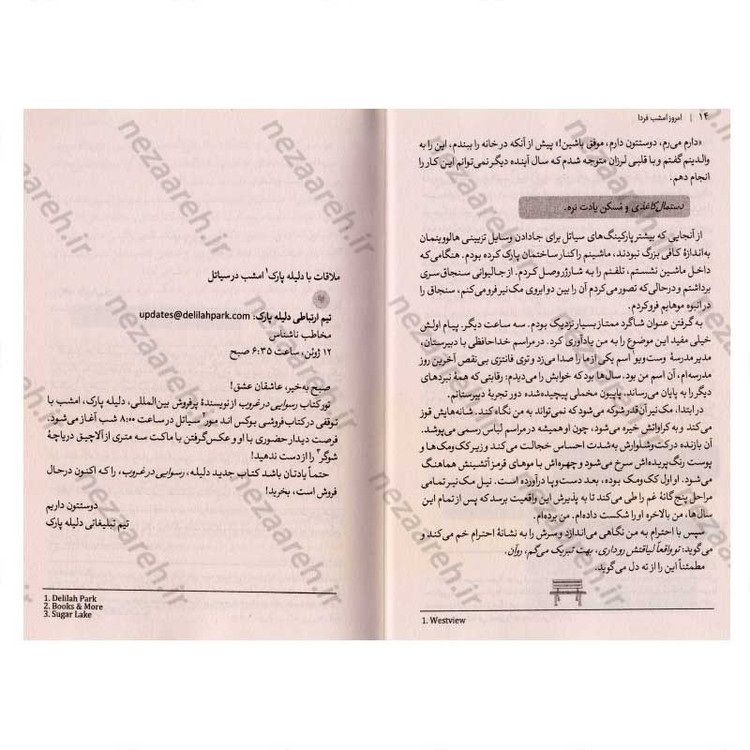 ۱۴ | امروز امشب فردا
«دارم می‌رم، دوستتون دارم، موفق باشین!» پیش از آنکه در خانه را ببندم، این را به
والدینم گفتم و با قلبی لرزان متوجه شدم که سال آینده دیگر نمی‌توانم این کار را
انجام دهم.
دستمال کاغذی و مُسکن یادت نره.
از آنجایی که بیشتر پارکینگ‌های سیاتل برای جادادن وسایل تزیینی هالووینمان
به‌اندازهٔ کافی بزرگ نبودند، ماشینم را کنار ساختمان پارک کرده بودم. هنگامی‌که
داخل ماشین نشستم، تلفنم را به شارژر وصل کردم. از جالیوانی سنجاق‌سری
برداشتم و درحالی‌که تصور می‌کردم آن را بین دو ابروی مک‌نیر فرومی‌کنم، سنجاق را
در انبوه موهایم فروکردم.
به گرفتن عنوان شاگرد ممتاز بسیار نزدیک بودم. سه ساعت دیگر. پیام اولش
خیلی مفید این موضوع را به من یادآوری کرد. در مراسم خداحافظی با دبیرستان،
مدیر مدرسهٔ وست‌ویو¹ اسم یکی از ما را صدا می‌زد و توی فانتزی بی‌نقص آخرین روز
مدرسه‌ام، آن اسم من بود. سال‌ها بود که خوابش را می‌دیدم: رقابتی که همهٔ نبردهای
دیگر را به پایان می‌رساند. پاپیون مخملی پیچیده‌شده دور تجربهٔ دبیرستانم.
در ابتدا، مک‌نیر آن‌قدر شوکه می‌شود که نمی‌تواند به من نگاه کند. شانه‌هایش قوز
می‌کند و به کراواتش خیره می‌شود، چون او همیشه در مراسم لباس رسمی می‌پوشد.
آن بازنده درکت‌وشلوارش به‌شدت احساس خجالت می‌کند و زیر کک‌ومک‌ها و
پوست رنگ‌پریده‌اش سرخ می‌شود و چهره‌اش با موهای قرمز آتشینش هماهنگ
می‌شود. او اول کک‌ومک بوده، بعد دست‌وپا درآورده است. نیل مک‌نیر تمامی
مراحل پنج‌گانهٔ غم را طی می‌کند تا به پذیرش این واقعیت برسد که پس از تمام این
سال‌ها، من بالاخره او را شکست داده‌ام. من برده‌ام.
سپس با احترام به من نگاهی می‌اندازد و سرش را به نشانهٔ احترام خم می‌کند و
می‌گوید: تو واقعاً لیاقتش رو داری، بهت تبریک می‌گم، روآن.
مطمئناً این را از ته دل می‌گوید.
1. Westview
ملاقات با دلیله پارک¹ امشب در سیاتل
تیم ارتباطی دلیله پارک: updates@delilahpark.com
مخاطب ناشناس
۱۲ ژوئن، ساعت ۶:۳۵ صبح
صبح به‌خیر، عاشقان عشق!
تور کتاب رسوایی در غروب از نویسندهٔ پرفروش بین‌المللی، دلیله پارک، امشب با
توقفی در کتاب‌فروشی بوکس اند مور² سیاتل در ساعت ۸:۰۰ شب آغاز می‌شود.
فرصت دیدار حضوری با او و عکس‌گرفتن با ماکت سه متری از آلاچیق دریاچهٔ
شوگر³ را از دست ندهید!
حتماً یادتان باشد کتاب جدید دلیله، رسوایی در غروب، را که اکنون درحال
فروش است، بخرید!
دوستتون داریم
تیم تبلیغاتی دلیله پارک
1. Delilah Park
2. Books & More
3. Sugar Lake
nezaareh.ir
nezaareh.ir
nezaareh.ir
nezaareh.ir
nezaareh.ir
nezaareh.ir
nezaareh.ir
nezaareh.ir